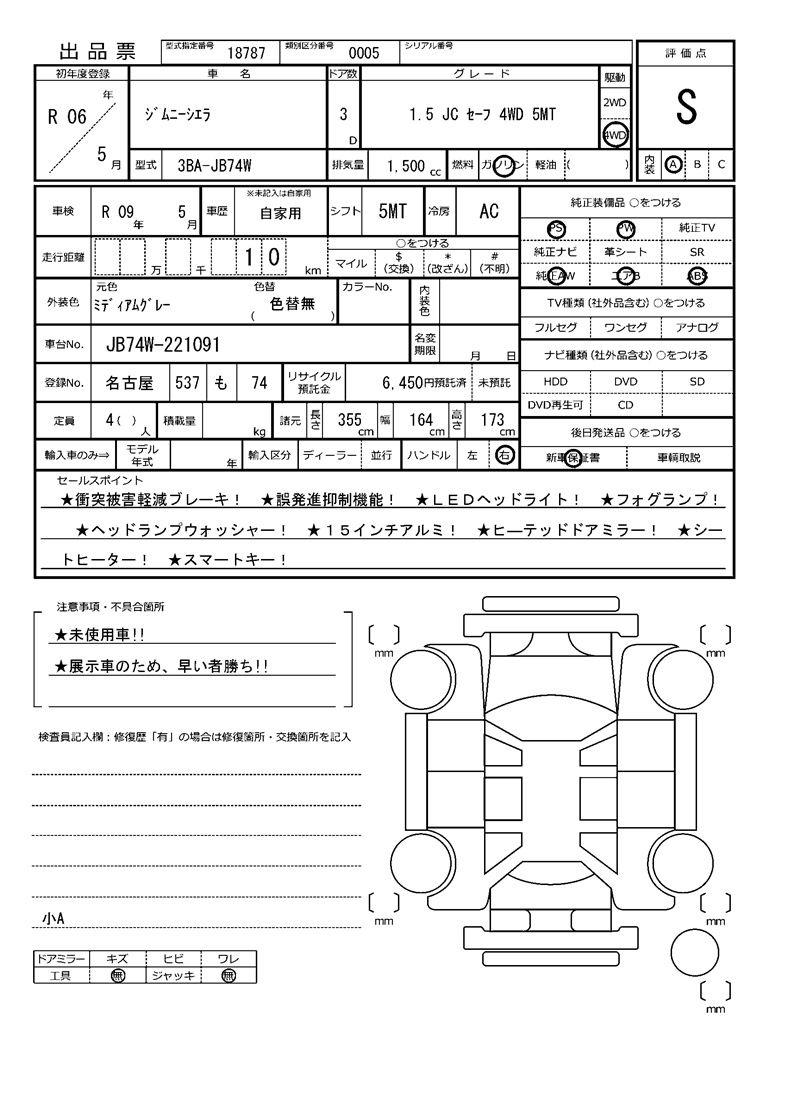 出品票 型式指定番号 18787 類別区分番号 0005 シリアル番号 評価点
初年度登録 車名 ドア数 グレード 駆動
R 06 年 5 月 ジムニーシエラ 3 D 1.5 JC セーフ 4WD 5MT 2WD 4WD S
型式 3BA-JB74W 排気量 1,500 cc 燃料 ガソリン 軽油 ( ) 内装 A B C
車検 R 09 年 5 月 車歴 ※未記入は自家用 自家用 シフト 5MT 冷房 AC 純正装備品 ○をつける
PS PW 純正TV
走行距離 万 千 1 0 km ○をつける
マイル $ (交換) * (改ざん) # (不明) 純正ナビ 革シート SR
純正AW エアB ABS
外装色 元色 ミディアムグレー 色替 ( 色替無 ) カラーNo. 内装色
TV種類(社外品含む)○をつける
フルセグ ワンセグ アナログ
車台No. JB74W-221091 名変期限 月 日
ナビ種類(社外品含む)○をつける
登録No. 名古屋 537 も 74 リサイクル預託金 6,450円預託済 未預託
HDD DVD SD
DVD再生可 CD
定員 4( ) 人 積載量 kg 諸元 長さ 355 cm 幅 164 cm 高さ 173 cm
後日発送品 ○をつける
輸入車のみ⇒ モデル年式 年 輸入区分 ディーラー 並行 ハンドル 左 右
新車保証書 車輌取説
セールスポイント
★衝突被害軽減ブレーキ! ★誤発進抑制機能! ★LEDヘッドライト! ★フォグランプ!
★ヘッドランプウォッシャー! ★15インチアルミ! ★ヒーテッドドアミラー! ★シー
トヒーター! ★スマートキー!
注意事項・不具合箇所
★未使用車!!
★展示車のため、早い者勝ち!!
mm mm
検査員記入欄:修復歴「有」の場合は修復箇所・交換箇所を記入
小A
mm mm
ドアミラー キズ ヒビ ワレ
工具 無 ジャッキ 無
mm